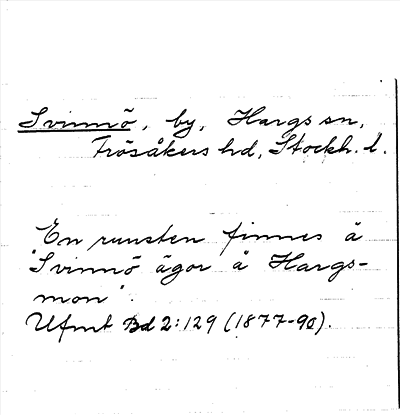 Svinnö, by, Hargs sn,
Frösåkers hd, Stockh. l.
En runsten finnes å
"Svinnö ägor å Hargs-
mon".
Ufmt Bd 2:129 (1877-90).